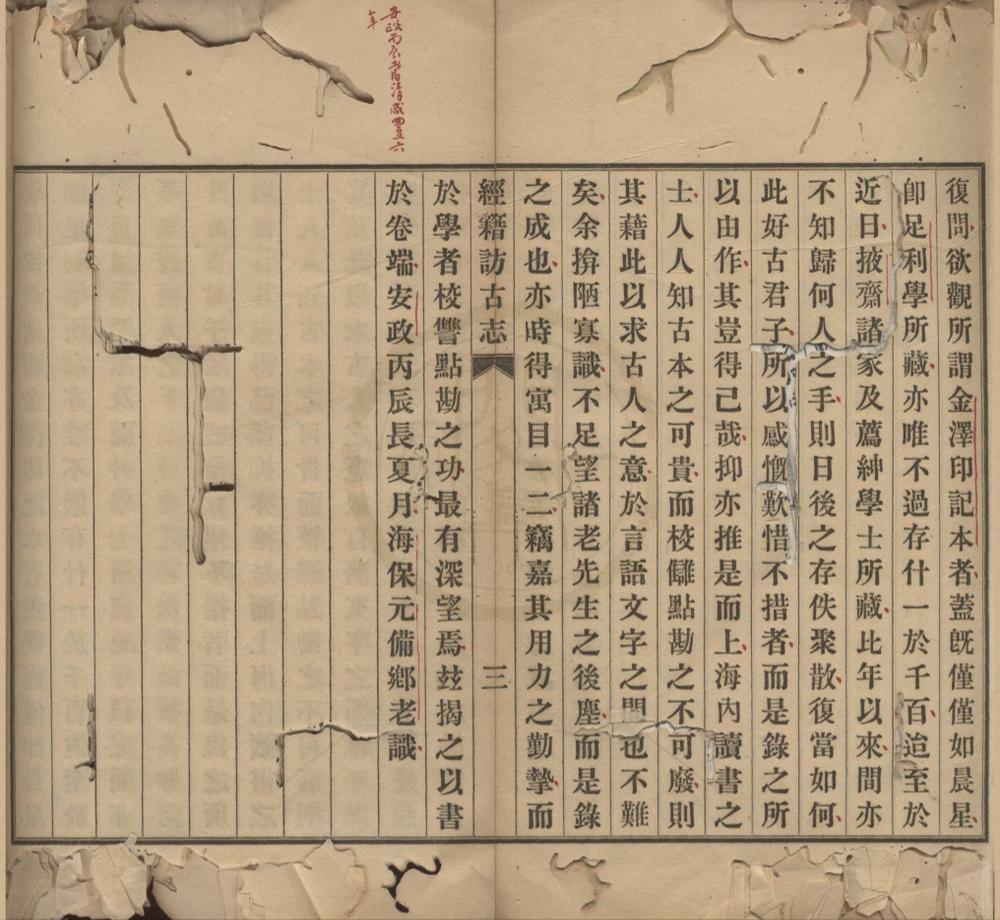 安政丙辰當清咸豐六
年
復問欲觀所謂金澤印記本者蓋旣僅僅如晨星
卽足利學所藏亦唯不過存什一於千百迨至於
近日掖齋諸家及薦紳學士所藏比年以來間亦
不知歸何人之手則日後之存佚聚散復當如何
此好古君子所以感慨歎惜不措者而是錄之所
以由作其豈得已哉抑亦推是而上海內讀書之
士人人知古本之可貴而校讎點勘之不可廢則
其藉此以求古人之意於言語文字之間也不難
矣余揜陋寡識不足望諸老先生之後塵而是錄
之成也亦時得寓目一二竊嘉其用力之勤摯而
經籍訪古志 三
於學者校讐點勘之功最有深望焉玆揭之以書
於卷端安政丙辰長夏月海保元備鄉老識